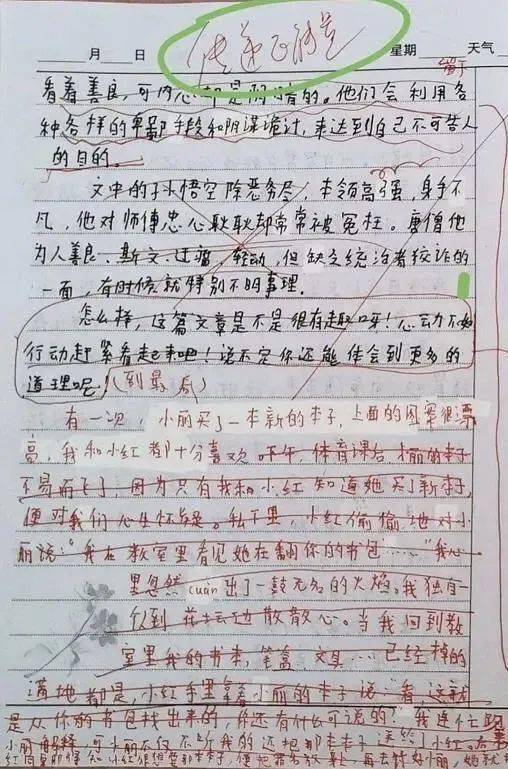 传递正能量
月 日 星期 天气
留于
看着善良,可内心却是阴暗的。他们会利用各
种各样的卑鄙手段和阴谋诡计,来达到自己不可告人
的目的。
文中的孙悟空除恶务尽,本领高强,身手不
凡,他对师傅忠心耿耿却常常被冤枉。唐僧他
为人善良、斯文、迂腐,轻动,但缺乏统治者狡诈的
一面,有时候就特别不明事理.
怎么样,这篇文章是不是很有趣呀!心动不如
行动赶紧看起来吧!说不定你还能体会到更多的
道理呢 (到最后)
有一次,小丽买了一本新的本子,上面的图案很漂
亮,我和小红都十分喜欢 下午,体育课后,小丽的本子
不易而飞了,因为只有我和小红知道她买了新本子,
便对我们心生怀疑。私下里,小红偷偷地对小
丽说:"我在教室里看见她在翻你的书包……"我心
里忽然cuàn出了一鼓无名的火焰。我独自一
人到花坛边散散心。当我回到教
室里我的书本,笔盒,文具……已经掉的
满地都是,小红手里拿着小丽的本子说:看,这就
是从你的书包找出来的,你还有什么可说的?我连忙
小丽解释,可小丽不仅不听我的还把那本本子送给了小红。
小红很想要那本本子,